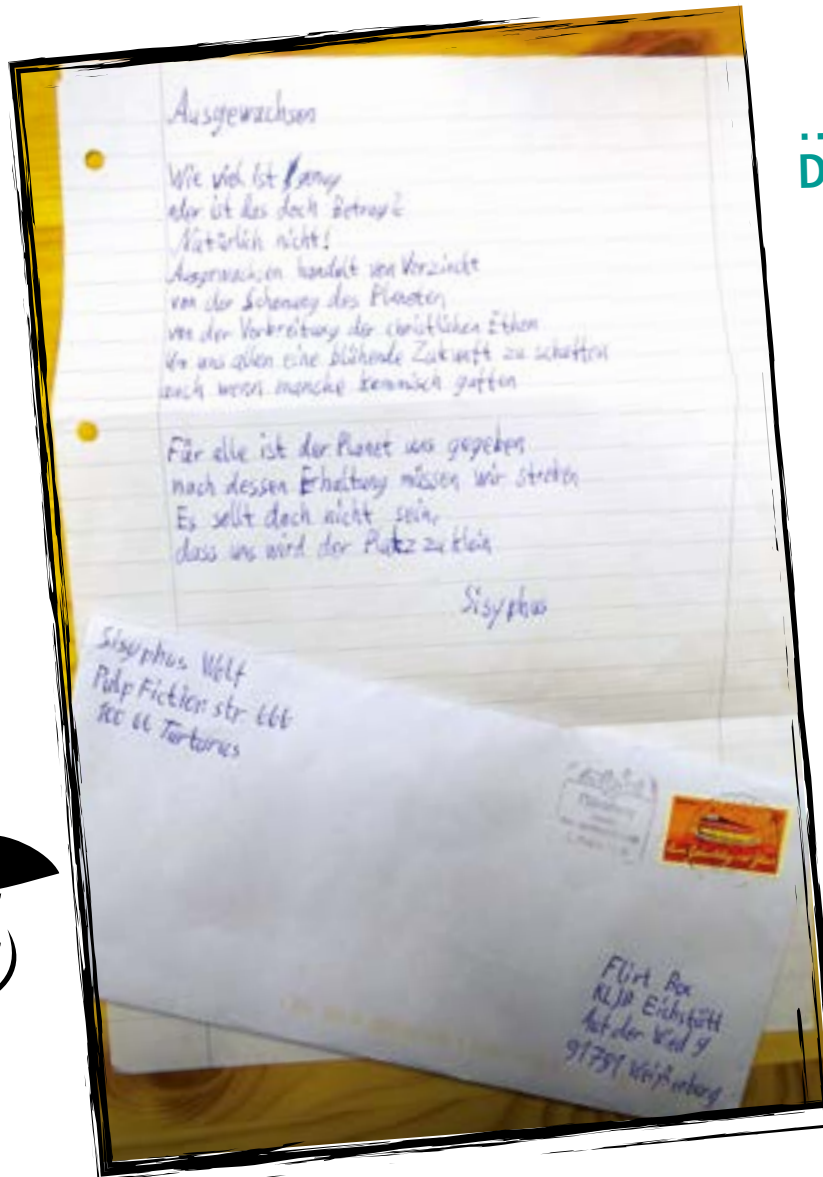 Ausgewachsen
Wie viel ist genug
oder ist das doch Betrug?
Natürlich nicht!
Ausgewachsen handelt von Verzicht
von der Schonung des Planeten
von der Verbreitung der christlichen Ethen
Um uns allen eine blühende Zukunft zu schaffen
auch wenn manche kommisch gaffen
Für alle ist der Planet uns gegeben
nach dessen Erhaltung müssen wir streben
Es sollt doch nicht sein,
dass uns wird der Platz zu klein
Sisyphus
Sisyphus Wolf
Pulp Fiction str 666
100 66 Tartarus
Flirt Box
KLJB Eichstätt
Auf der Wed 9
91781 Weißenburg
D